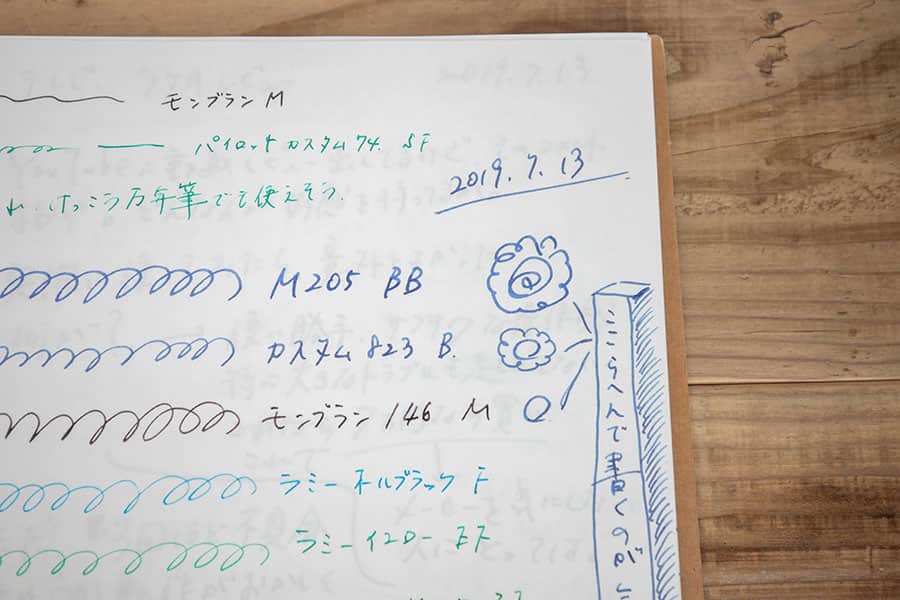 モンブラン M
パイロット カスタム 74. SF
れ、けっこう万年筆でも使えそう.
2019.7.13
M205 BB
カスタム 823 B.
モンブラン 146 M
ラミー オールブラック F
ラミー イエロー EF
ここらへんで書くのが